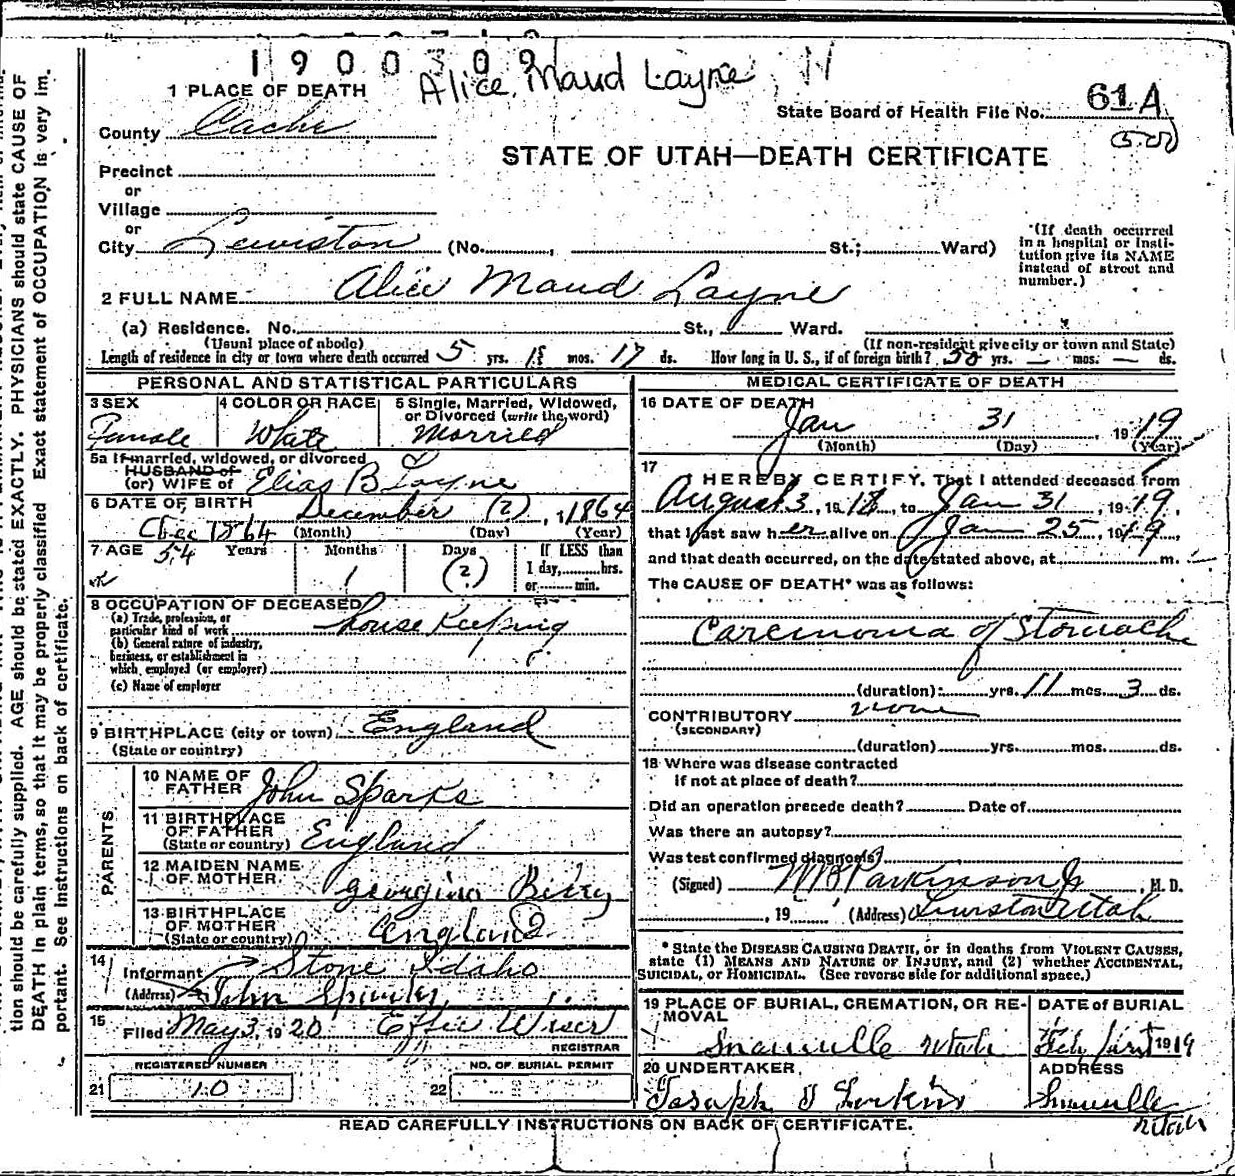 1900709
Alice Maud Layne
1 PLACE OF DEATH
State Board of Health File No. 61 A
County Cache
STATE OF UTAH—DEATH CERTIFICATE
Precinct
or
Village
or
City Lewiston (No. , St.; Ward)
(If death occurred in a hospital or institution give its NAME instead of street and number.)
2 FULL NAME Alice Maud Layne
(a) Residence. No. St., Ward.
(Usual place of abode) (If non-resident give city or town and State)
Length of residence in city or town where death occurred 5 yrs. mos. 17 ds. How long in U. S., if of foreign birth? 50 yrs. — mos. — ds.
PERSONAL AND STATISTICAL PARTICULARS
3 SEX Female
4 COLOR OR RACE White
5 Single, Married, Widowed, or Divorced (write the word) Married
5a If married, widowed, or divorced
HUSBAND of
(or) WIFE of Elias B Layne
6 DATE OF BIRTH December (?), 1864
Dec 1864 (Month) (Day) (Year)
7 AGE 54 Years 1 Months (?) Days
If LESS than 1 day, hrs. or min.
8 OCCUPATION OF DECEASED
(a) Trade, profession, or particular kind of work house Keeping
(b) General nature of industry, business, or establishment in which employed (or employer)
(c) Name of employer
9 BIRTHPLACE (city or town) England
(State or country)
PARENTS
10 NAME OF FATHER John Sparks
11 BIRTHPLACE OF FATHER (State or country) England
12 MAIDEN NAME OF MOTHER Georgina
13 BIRTHPLACE OF MOTHER (State or country) England
14 Informant Stone Idaho
(Address) John
15 Filed May 3, 1920 Effie Wiser
REGISTRAR
REGISTERED NUMBER
21 10
NO. OF BURIAL PERMIT
22
MEDICAL CERTIFICATE OF DEATH
16 DATE OF DEATH
Jan 31, 1919
(Month) (Day) (Year)
17 I HEREBY CERTIFY, That I attended deceased from
August 3, 1918, to Jan 31, 1919,
that I last saw her alive on Jan 25, 1919,
and that death occurred, on the date stated above, at m.
The CAUSE OF DEATH* was as follows:
Carcinoma of Stomach
(duration) yrs. 11 mos. 3 ds.
CONTRIBUTORY none
(SECONDARY)
(duration) yrs. mos. ds.
18 Where was disease contracted
if not at place of death?
Did an operation precede death? Date of
Was there an autopsy?
Was test confirmed diagnosis?
(Signed) W B Parkinson Jr, M. D.
, 19 (Address) Lewiston Utah
* State the DISEASE CAUSING DEATH, or in deaths from VIOLENT CAUSES, state (1) MEANS AND NATURE OF INJURY, and (2) whether ACCIDENTAL, SUICIDAL, or HOMICIDAL. (See reverse side for additional space.)
19 PLACE OF BURIAL, CREMATION, OR REMOVAL
Utah
DATE of BURIAL
Feb 1919
20 UNDERTAKER
Joseph
ADDRESS
Utah
READ CAREFULLY INSTRUCTIONS ON BACK OF CERTIFICATE.
tion should be carefully supplied. AGE should be stated EXACTLY. PHYSICIANS should state CAUSE OF
DEATH in plain terms, so that it may be properly classified. Exact statement of OCCUPATION is very im-
portant. See instructions on back of certificate.